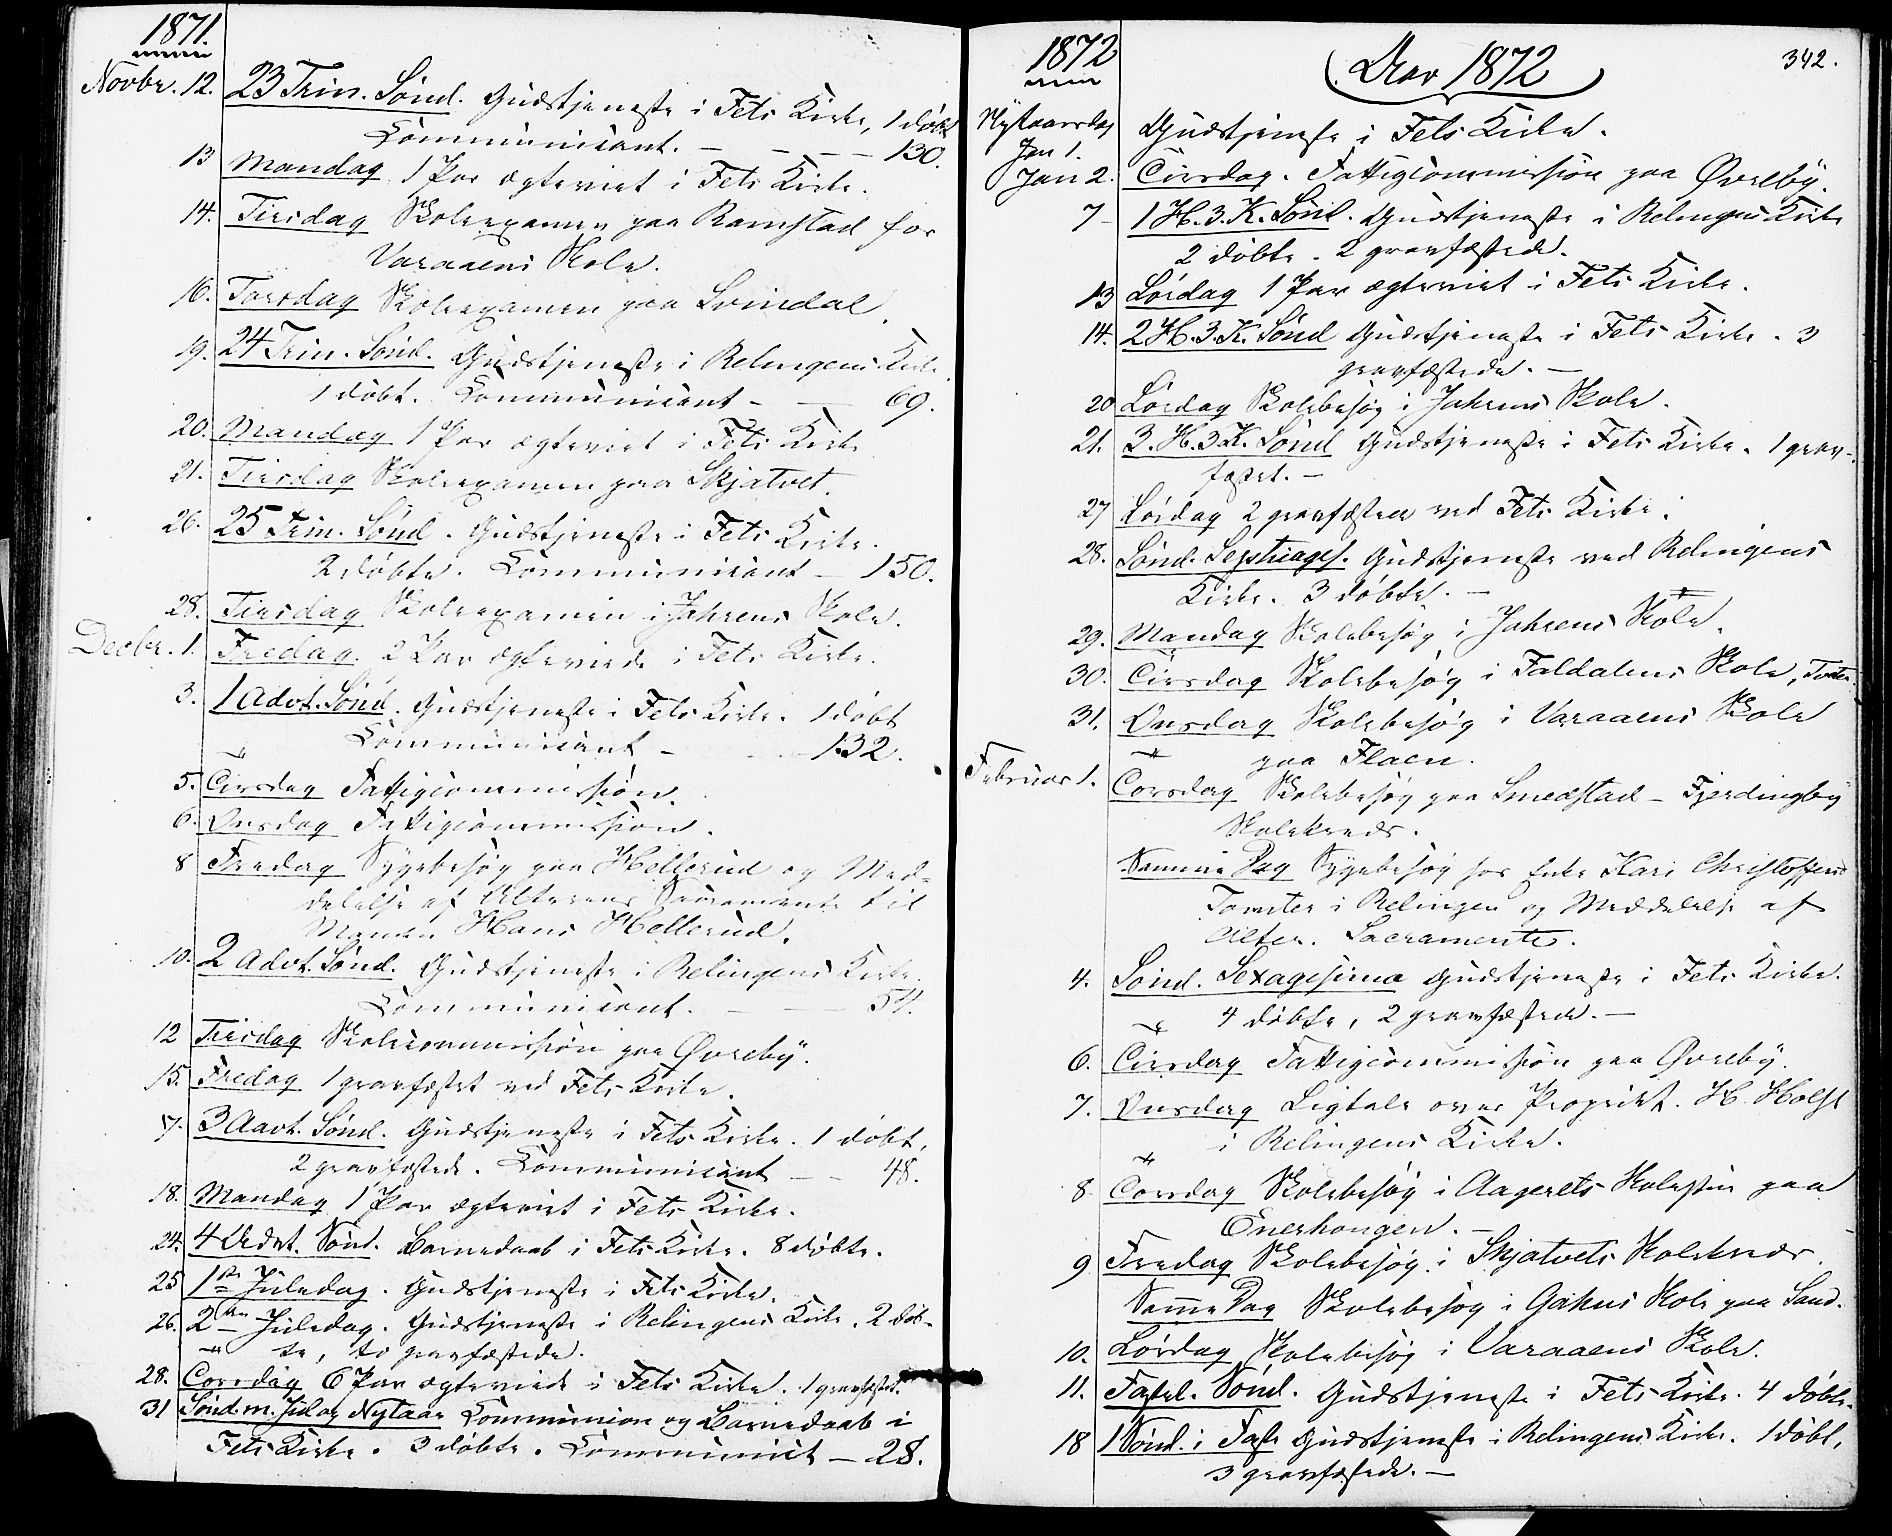 1871.
Novbr. 12. 23 Trin. Sönd. Gudstjeneste i Fets Kirke, 1 døbt
Communicant. — — — — 130.
13 Mandag 1 Par ægteviet i Fets Kirke.
14. Tirsdag Skoleexamen paa Ramstad for
Varaaens Skole.
16. Torsdag Skoleexamen paa Svindal.
19. 24 Trin. Sönd. Gudstjeneste i Relingens Kirke.
1 döbt. Communicant — — 69.
20. Mandag 1 Par ægteviet i Fets Kirke
21. Tirsdag Skoleexamen paa Skjatvet.
26. 25 Trin. Sönd. Gudstjeneste i Fets Kirke.
2 døbte. Communicant — 150.
28. Tirsdag Skoleexamen i Jahrens Skole.
Decbr. 1. Fredag. 2 Par ægteviede i Fets Kirke.
3. 1 Advt. Sönd. Gudstjeneste i Fets Kirke. 1 døbt
Communicant — 132.
5. Tirsdag Fattigcommission.
6. Onsdag Fattigcommission.
8 Fredag Sygebesøg paa Hellerud og Med-
delelse af Alterens Sacramente til
Manden Hans Hellerud.
10. 2 Advt. Sönd. Gudstjeneste i Relingens Kirke.
Communicant. — — — 54.
12 Tirsdag Skolecommission paa Øvreby.
15. Fredag 1 gravfæstet ved Fets Kirke.
17. 3 Advt. Sönd. Gudstjeneste i Fets Kirke. 1 døbt,
2 gravfæstede. Communicant — — 48.
18. Mandag 1 Par ægteviet i Fets Kirke.
24. 4 Advt. Sönd. Barnedaab i Fets Kirke. 8 døbte.
25 1ste Juledag. Gudstjeneste i Fets Kirke.
26. 2den Juledag. Gudstjeneste i Relingens Kirke. 2 döb-
te, to gravfæstede.
28. Torsdag 6 Par ægteviede i Fets Kirke. 1 gravfæstet.
31 Sönd. m. Jul og Nytaar Communion og Barnedaab i
Fets Kirke. 3 døbte. Communicit — 28.
1872
Aar 1872
342.
Nytaarsdag
Jan 1. Gudstjeneste i Fets Kirke.
Jan 2. Tirsdag. Fattigcommission paa Øvreby.
7 — 1 H. 3. K. Sönd. Gudstjeneste i Relingens Kirke
2 døbte. 2 gravfæstede.
13 Lördag 1 Par ægteviet i Fets Kirke.
14. 2 H. 3. K. Sönd Gudstjeneste i Fets Kirke. 3
gravfæstede. —
20 Lördag Skolebesøg i Jahrens Skole.
21. 3. H. 3 K. Sönd Gudstjeneste i Fets Kirke. 1 grav-
fæstet. —
27 Lördag 2 gravfæstede ved Fets Kirke.
28. Sönd. Septuages. Gudstjeneste ved Relingens
Kirke. 3 döbte. —
29. Mandag Skolebesøg i Jahrens Skole.
30. Tirsdag Skolebesøg i Faldalens Skole,
31. Onsdag Skolebesøg i Varaaens Skole
paa Flaen.
Februar 1. Torsdag Skolebesøg paa Smedstad — Fjerdingby
Skolekreds.
Samme Dag Sygebesøg hos Enke Kari Christoffersd
Tomter i Relingen og Meddelelse af
Alter. Sacramente.
4. Sönd. Sexagesima Gudstjeneste i Fets Kirke.
4 døbte, 2 gravfæstede. —
6. Tirsdag Fattigcommission paa Øvreby.
7. Onsdag Ligtale over Propriet. H. Holst
i Relingens Kirke.
8 Torsdag Skolebesøg i Aagerets Skolestue paa
Enerhaugen. —
9 Fredag Skolebesøg i Skjatvets Skolekreds.
Samme Dag Skolebesøg i Gahus Skole paa Sand.
10. Lördag Skolebesøg i Varaaens Skole.
11. Fastel. Sönd. Gudstjeneste i Fets Kirke. 4 døbte.
18 1 Sönd. i Faste Gudstjeneste i Relingens Kirke. 1 døbt,
3 gravfæstede. —